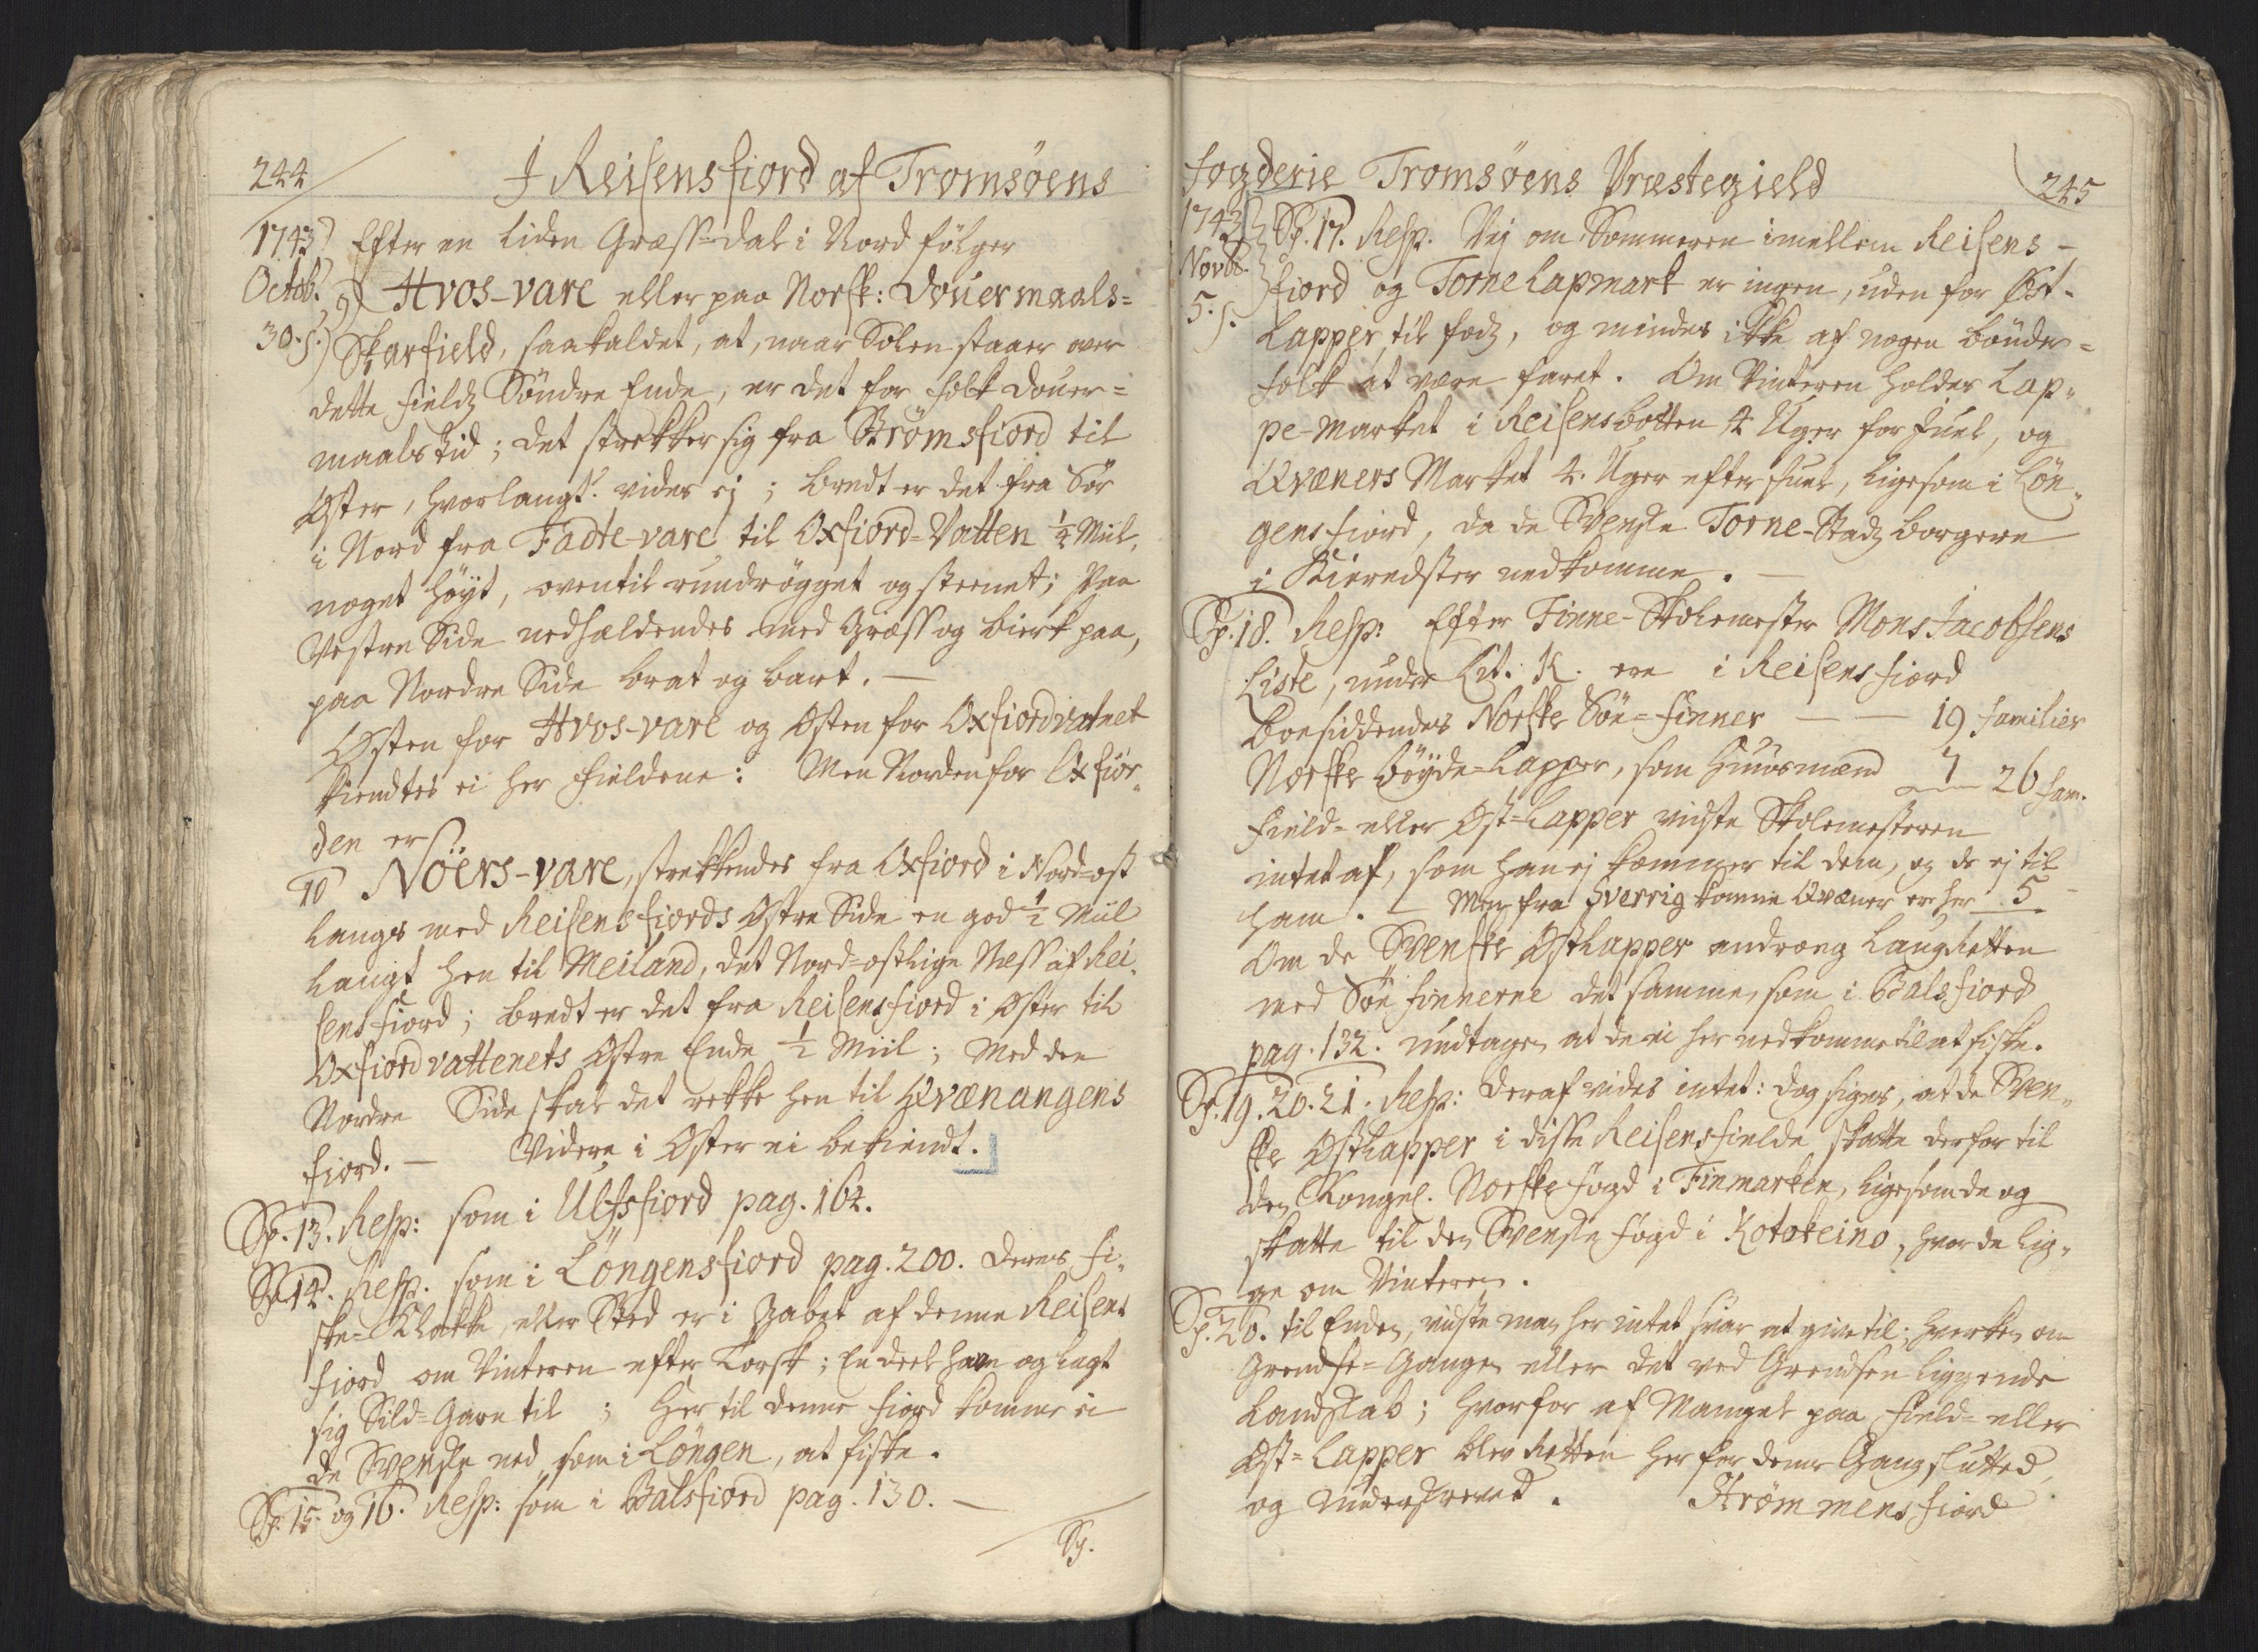 244
I Reisensfiord af Tromsöens
1743
Octob.
30. s.
Efter en liden Græss-dal i Nord fölger
9) Hvos-vare eller paa Norsk: Douermaals-
Skarfield, saakaldet, at, naar Solen staaer over
dette Fields Söndre Ende, er det for folk douer-
maals tid; det strekker sig fra Strömsfiord til
Öster, hvorlangt? vides ej; bredt er det fra Sör
i Nord fra Fadte-vare til Oxfiord-Vatten 1/4 Miil,
noget höyt, oventil rundrögget og steenet; Paa
Vestre Side nedhældendes med Græss og bierk paa,
paa Nordre Side brat og bart. —
Östen for Hvos-vare og Östen for Oxfiordvatnet
kiendtes ei her Fieldene: Men Norden for Oxfior-
den er
10 Nöers-vare, strekkendes fra Oxfiord i Nord-ost
langs med Reisensfiords Östre Side en god 1/2 Miil
langt hen til Meiland, det Nord-ostlige Næss af Rei-
sensfiord; bredt er det fra Reisensfiord i Öster til
Oxfiordvattenets Östre Ende 1/2 Miil; Med den
Nordre Side skal det rekke hen til Qvænangens
fiord. — Videre i Öster ei bekiendt.
Sp. 13. Resp: som i Ulfsfiord pag. 164.
Sp. 14. Resp. som i Löngensfiord pag. 200. deres Fi-
ske-Klakke, eller Sted er i Gabet af denne Reisens
fiord om Vinteren efter Torsk; En deel have og lagt
sig Sild-Garn til; Her til denne fiord komme ei
de Svenske ned, som i Löngen, at fiske.
Sp. 15. og 16. Resp: som i Balsfiord pag. 130. —
Sp.
Fogderie Tromsöens Præstegield
245
1743
Novbr.
5. s.
Sp. 17. Resp. Vej om Sommeren imellem Reisens-
fiord og Torne Lapmark er ingen, uden for Öst-
Lapper til fods, og mindes ikke af nogen bönder-
folk at være faret. Om Vinteren holdes Lap-
pe-Market i Reisensbotten 4 Uger for Juel, og
Qvæners Market 4. Uger efter Juel, ligesom i Lön-
gensfiord, da de Svenske Torne-Stads borgere
i Kieredster nedkomme. —
Sp. 18. Resp: Efter Finne-Skolemester Mons Jacobsens
Liste, under Lit. K. ere i Reisensfiord
Boesiddendes Norske Söe-Finner — — 19 familier
Norske Böyde-Lapper, som Huusmænd 7 26 fam.
Field- eller Öst-Lapper vidste Skolemesteren
intet af, som han ej kommer til dem, og de ej til
ham. — Men fra Sverrig komne Qvæner er her 5
Om de Svenske Östlapper androeg Laugretten
med Söe finnerne det samme, som i Balsfiord
pag. 132. undtagen at de ei her nedkomme til at fiske.
Sp. 19. 20. 21. Resp: Deraf vides intet: dog siges, at de Sven-
ske Östlapper i disse Reisensfielde skatte derfor til
den Kongel. Norske Fogd i Finmarken, ligesom de og
skatte til den Svenske Fogd i Kotokeino, hvor de lig-
ge om Vinteren.
Sp. 20. til Enden, vidste man her intet svar at give til; hverken om
Grendse-Gangen eller det ved Grendsen liggende
Landskab; hvorfor af Mangel paa Field- eller
Öst-Lapper blev Retten her for denne Gang sluttet,
og underskrevet. Strömmensfiord